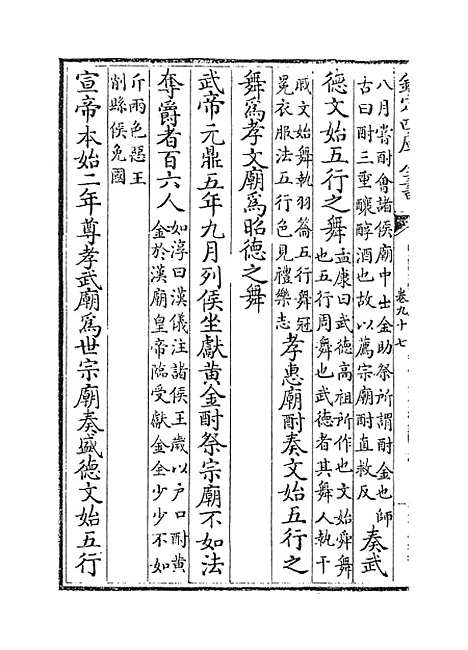 欽定四庫全書
卷九十七
八月嘗酎會諸侯廟中出金助祭所謂酎金也師
古曰酎三重釀醇酒也故以薦宗廟酎直救反
奏武
德文始五行之舞
孟康曰武德高祖所作也文始舜舞
也五行周舞也武德者其舞人執干
戚文始舞執羽籥五行舞冠
冕衣服法五行色見禮樂志
孝惠廟酎奏文始五行之
舞爲孝文廟爲昭德之舞
武帝元鼎五年九月列侯坐獻黄金酎祭宗廟不如法
奪爵者百六人
如淳曰漢儀注諸侯王歲以户口酎黄
金於漢廟皇帝臨受獻金金少少不如
斤兩色惡王
削縣侯免國
宣帝本始二年尊孝武廟爲世宗廟奏盛德文始五行